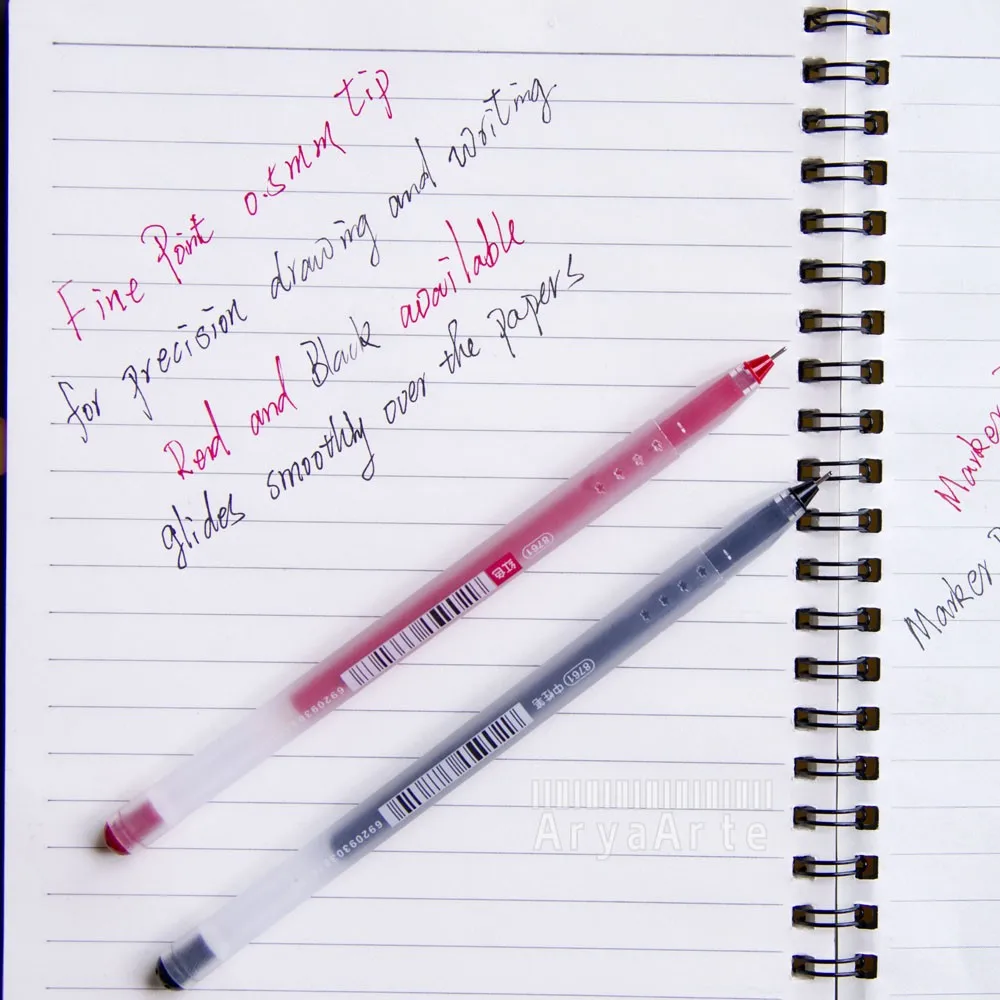 Fine Point 0.5mm tip
for precision drawing and writing
Red and Black available
glides smoothly over the papers
8761
红色
8761 中性笔
AryaArte
Marker
Marker